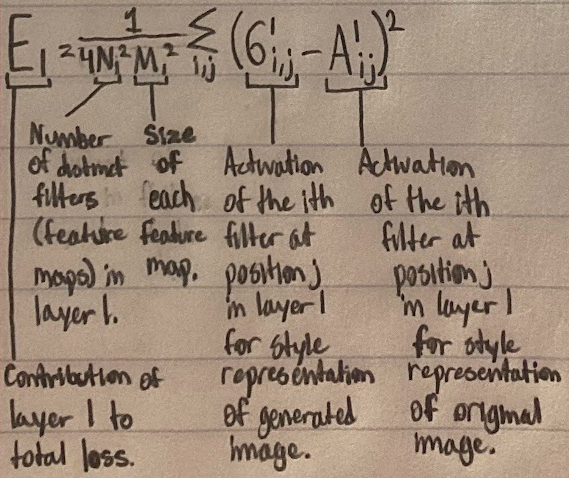 E_l = 1/(4N_l² M_l²) Σ_{i,j} (G^l_{i,j} − A^l_{i,j})²
Number
of distinct
filters
(feature
maps) in
layer l.
Size
of
each
feature
map.
Activation
of the ith
filter at
position j
in layer l
for style
representation
of generated
image.
Activation
of the ith
filter at
position j
in layer l
for style
representation
of original
image.
Contribution of
layer l to
total loss.